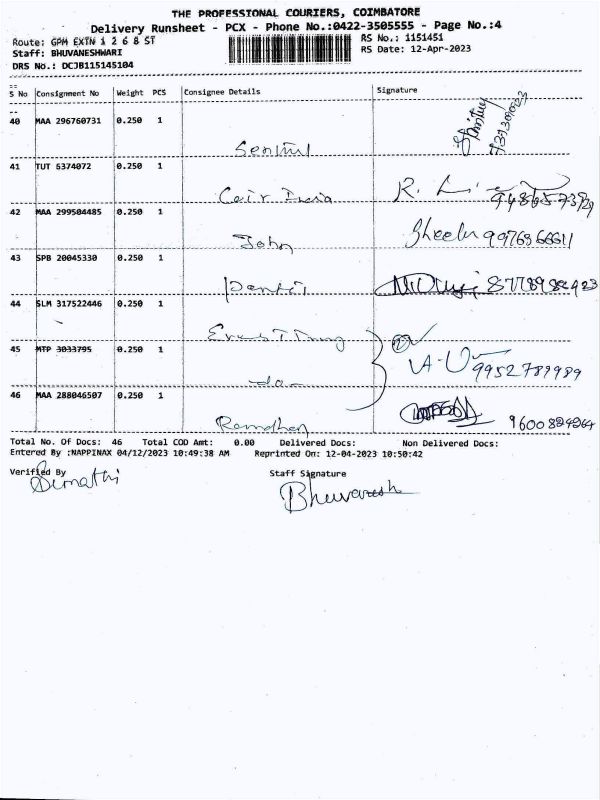 THE PROFESSIONAL COURIERS, COIMBATORE
Delivery Runsheet - PCX - Phone No.:0422-3505555 - Page No.:4
Route: GPM EXTN 1 2 6 8 ST
RS No.: 1151451
Staff: BHUVANESHWARI
RS Date: 12-Apr-2023
DRS No.: DCJB115145104
S No Consignment No Weight PCS Consignee Details Signature
40 MAA 296760731 0.250 1
Senthil
41 TUT 5374072 0.250 1
Coir India R.
42 MAA 299504485 0.250 1
John Sheela 9976966611
43 SPB 20045330 0.250 1
8778982423
44 SLM 317522446 0.250 1
45 MTP 3033795 0.250 1
-do- 9952789989
46 MAA 288046507 0.250 1
Ramdhan
Total No. Of Docs: 46 Total COD Amt: 0.00 Delivered Docs: Non Delivered Docs:
Entered By :NAPPINAX 04/12/2023 10:49:38 AM Reprinted On: 12-04-2023 10:50:42
Verified By Staff Signature
Sumathi Bhuvanesh